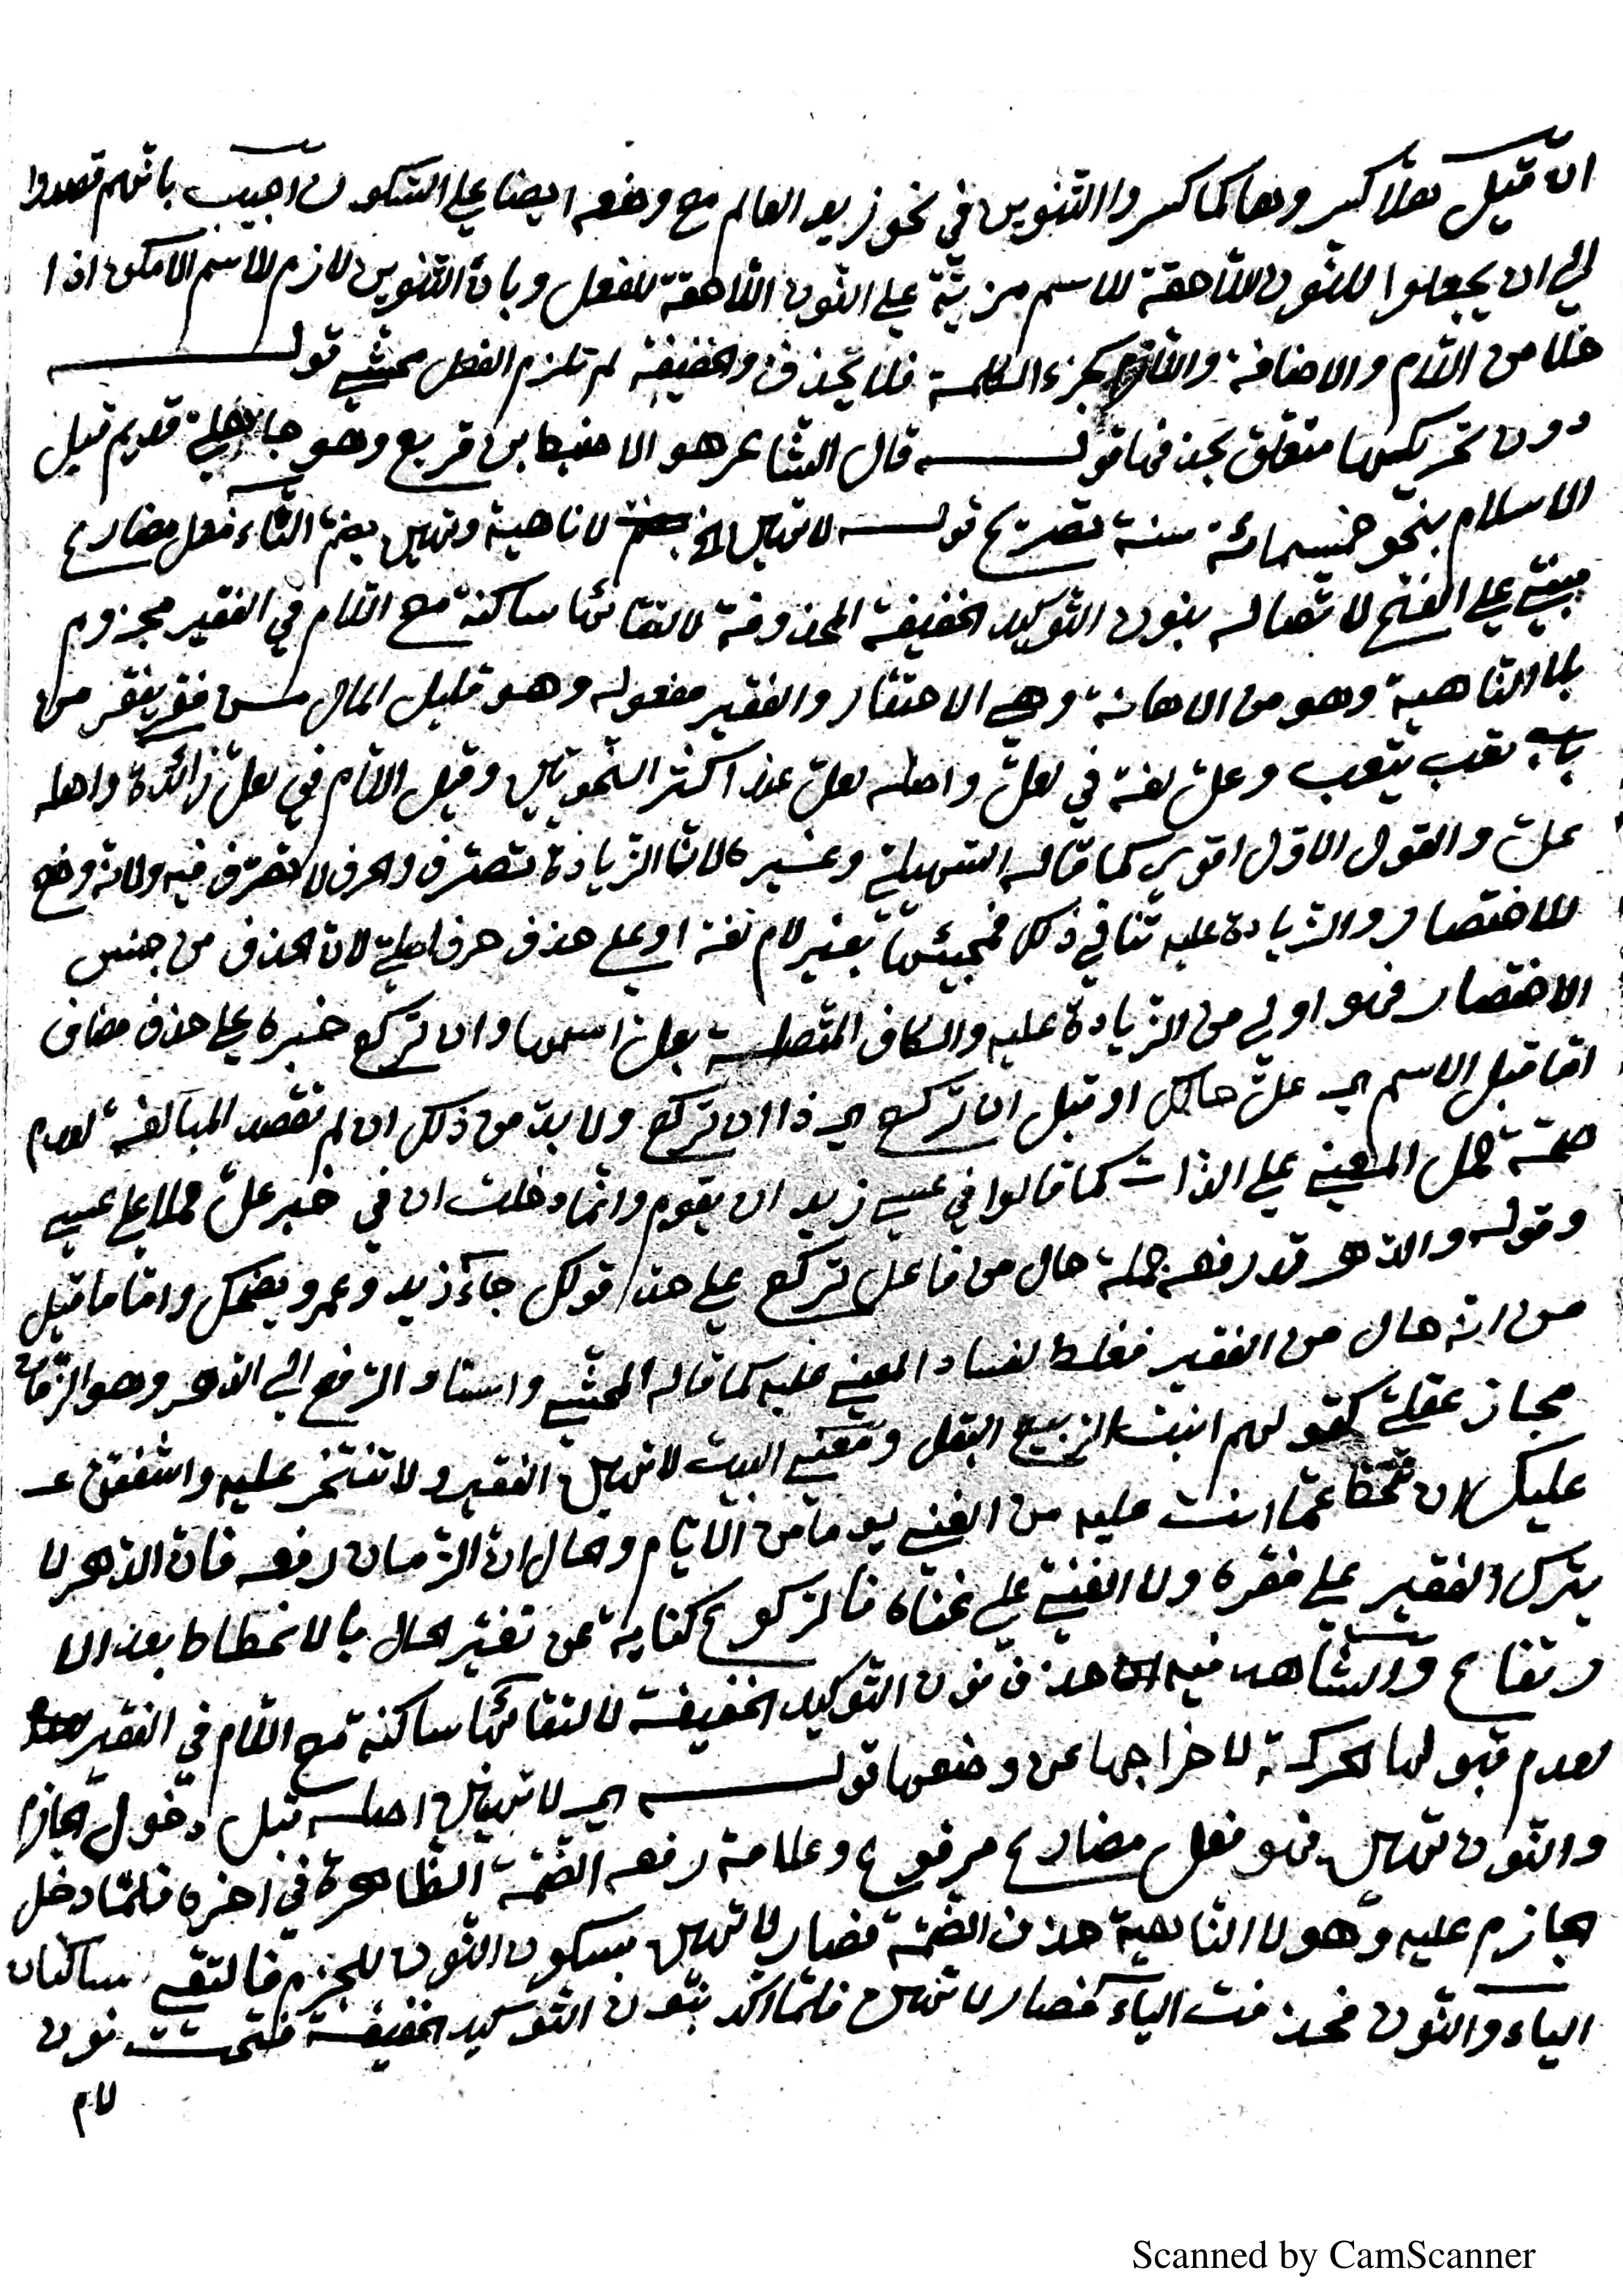 ان قيل هلا كسروها كما كسروا التنوين في نحو زيد العالم مع وضعه ايضا علي السكون اجيب بانهم قصدوا
الي ان يجعلوا للنون اللاحقة للاسم مزيّة علي النون اللاحقة للفعل وبان التنوين لازم للاسم الامكن اذا
خلا من اللام والاضافة واللازم كجزء الكلمة فلا تحذف والخفيفة لم تلزم الفعل محشي قوله
دون تحريكها متعلق بحذفها قوله قال الشاعر هو الاضبط ابن قريع وهو جاهلي قديم قبل
الاسلام بنحو خمسمائة سنة تصريح قوله لا تهين الخ لا ناهية وتهين بضم التاء فعل مضارع
مبني علي الفتح لاتصاله بنون التوكيد الخفيفة المحذوفة لالتقائها ساكنة مع اللام في الفقير مجزوم
بلا الناهية وهو من الاهانة وهي الاحتقار والفقير مفعوله وهو قليل المال من فقر يفقر من
باب تعب يتعب وعلّ لغة في لعلّ واصله لعلّ عند اكثر النحويين وقيل اللام في لعلّ زائدة واصله
علّ والقول الاول اقوي كما قاله السهيلي وغيره لان الزيادة تصرف والحرف لا تصرف فيه ولانه وضع
للاختصار والزيادة عليه تنافي ذلك فمجيئها بغير لام لغة او علي حذف حرف اصلي لان الحذف من جنس
الاختصار فهو اولي من الزيادة عليه والكاف المتصلة بعل اسمها وان تركع خبره علي حذف مضاف
اما قبل الاسم اي علّ حالك او قبل ان تركع اي ذا ان تركع ولا بد من ذلك ان لم تقصد المبالغة لعدم
صحة حمل المعني علي الذات كما قالوا في عسي زيد ان يقوم وانما دخلت ان في خبر علّ حملا علي عسي
وقوله والدهر قد رفعه جملة حال من فاعل تركع علي حد قولك جاء زيد وعمرو يضحك واما ما قيل
من انه حال من الفقير فغلط لفساد المعني عليه كما قاله المحشي واسناد الرفع الي الدهر وهو الزمان
مجاز عقلي كقولهم انبت الربيع البقل ومعني البيت لا تهين الفقير ولا تفتخر عليه واشفقن عـ
عليك ان تحط عما انت عليه من الغني يوما من الايام والحال ان الزمان رفعه فان الدهر لا
يترك الفقير علي فقره ولا الغني علي غناه فالركوع كناية عن تغير الحال بالانحطاط بعد الا
رتفاع والشاهد فيه حذف نون التوكيد الخفيفة لالتقائها ساكنة مع اللام في الفقير
لعدم قبولها الحركة لاخراجها عن وضعها قوله اي لا تهينن اصله قبل دخول الجازم
والنون تهين فهو فعل مضارع مرفوع وعلامة رفعه الضمة الظاهرة في اخره فلما دخل
الجازم عليه وهو لا الناهية حذف الضمة فصار لا تهين بسكون النون للجزم فالتقي ساكنان
الياء والنون فحذفت الياء فصار لا تهن فلما اكد بنون التوكيد الخفيفة فتحت نون
لام
Scanned by CamScanner